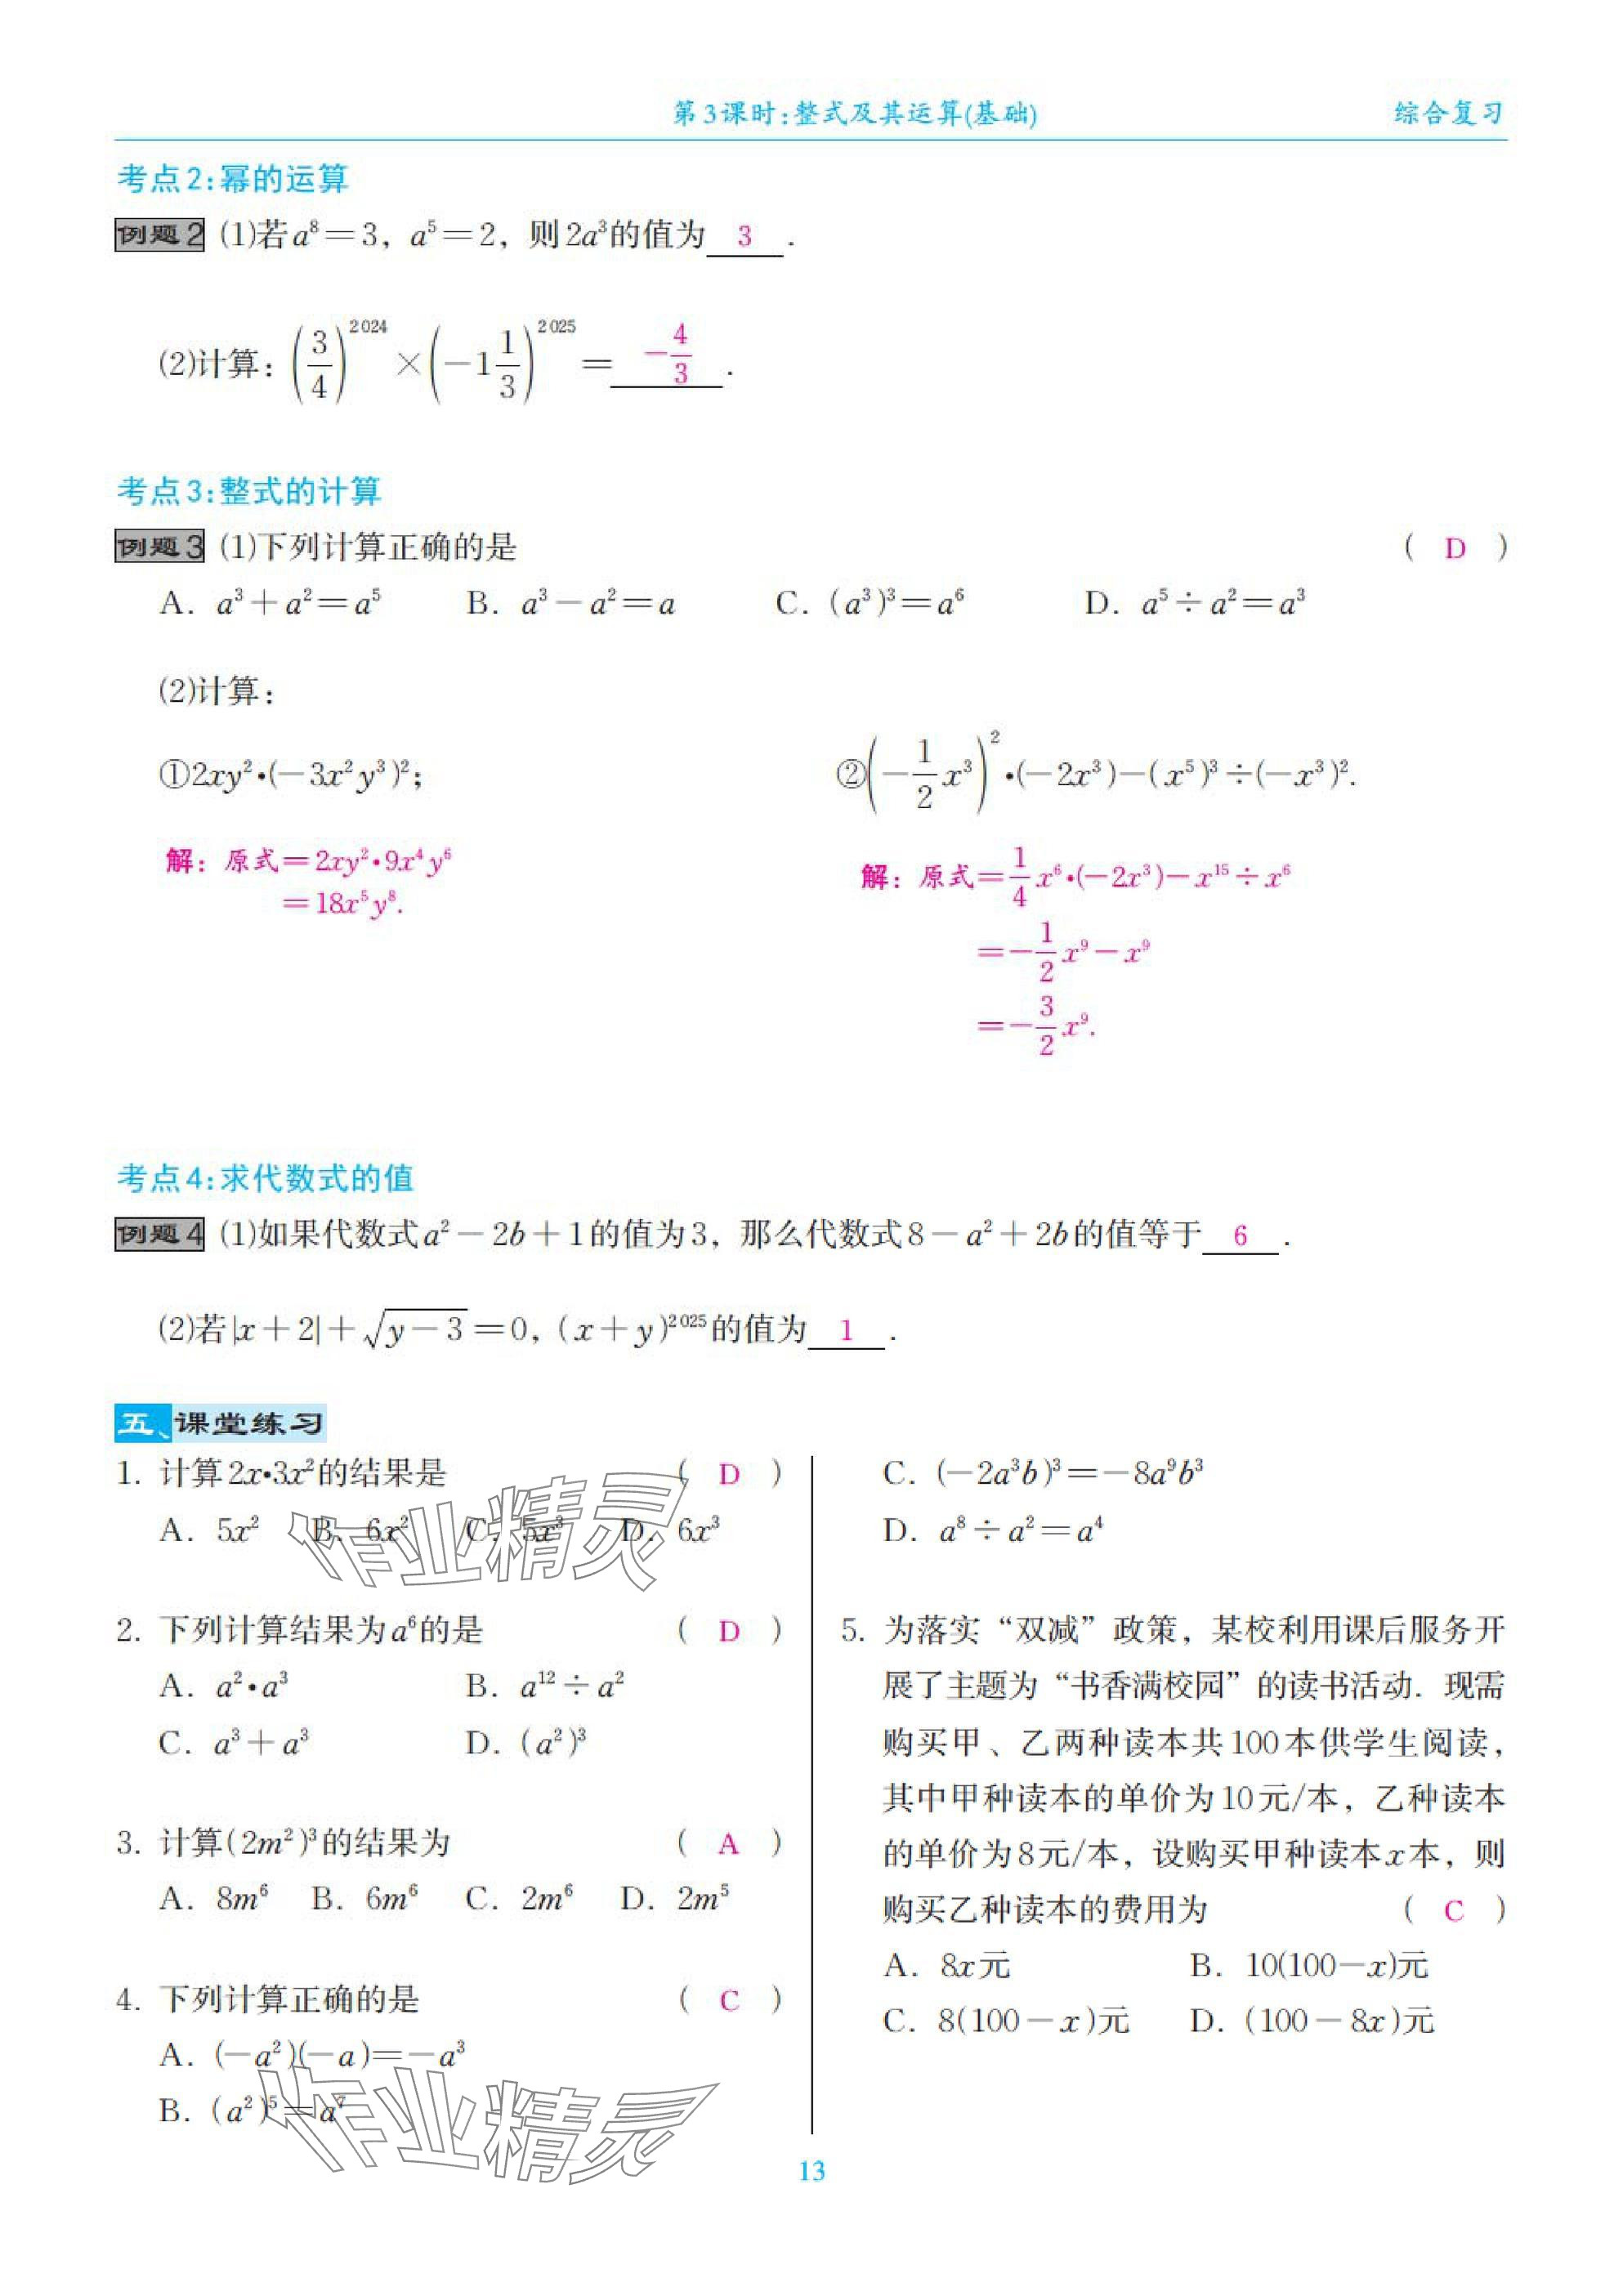 第3课时:整式及其运算(基础) 综合复习
考点2:幂的运算
例题2 (1)若a⁸=3，a⁵=2，则2a³的值为 3 .
(2)计算：(3/4)²⁰²⁴×(−1 1/3)²⁰²⁵= −4/3 .
考点3:整式的计算
例题3 (1)下列计算正确的是 ( D )
A. a³+a²=a⁵ B. a³−a²=a C. (a³)³=a⁶ D. a⁵÷a²=a³
(2)计算：
①2xy²•(−3x²y³)²; ②(−1/2 x³)²•(−2x³)−(x⁵)³÷(−x³)².
解：原式=2xy²•9x⁴y⁶
=18x⁵y⁸.
解：原式=1/4 x⁶•(−2x³)−x¹⁵÷x⁶
=−1/2 x⁹−x⁹
=−3/2 x⁹.
考点4:求代数式的值
例题4 (1)如果代数式a²−2b+1的值为3，那么代数式8−a²+2b的值等于 6 .
(2)若|x+2|+√(y−3)=0，(x+y)²⁰²⁵的值为 1 .
五、课堂练习
1. 计算2x•3x²的结果是 ( D )
A. 5x² B. 6x² C. 5x³ D. 6x³
2. 下列计算结果为a⁶的是 ( D )
A. a²•a³ B. a¹²÷a²
C. a³+a³ D. (a²)³
3. 计算(2m²)³的结果为 ( A )
A. 8m⁶ B. 6m⁶ C. 2m⁶ D. 2m⁵
4. 下列计算正确的是 ( C )
A. (−a²)(−a)=−a³
B. (a²)⁵=a⁷
C. (−2a³b)³=−8a⁹b³
D. a⁸÷a²=a⁴
5. 为落实“双减”政策，某校利用课后服务开
展了主题为“书香满校园”的读书活动. 现需
购买甲、乙两种读本共100本供学生阅读，
其中甲种读本的单价为10元/本，乙种读本
的单价为8元/本，设购买甲种读本x本，则
购买乙种读本的费用为 ( C )
A. 8x元 B. 10(100−x)元
C. 8(100−x)元 D. (100−8x)元
作业精灵
作业精灵
13